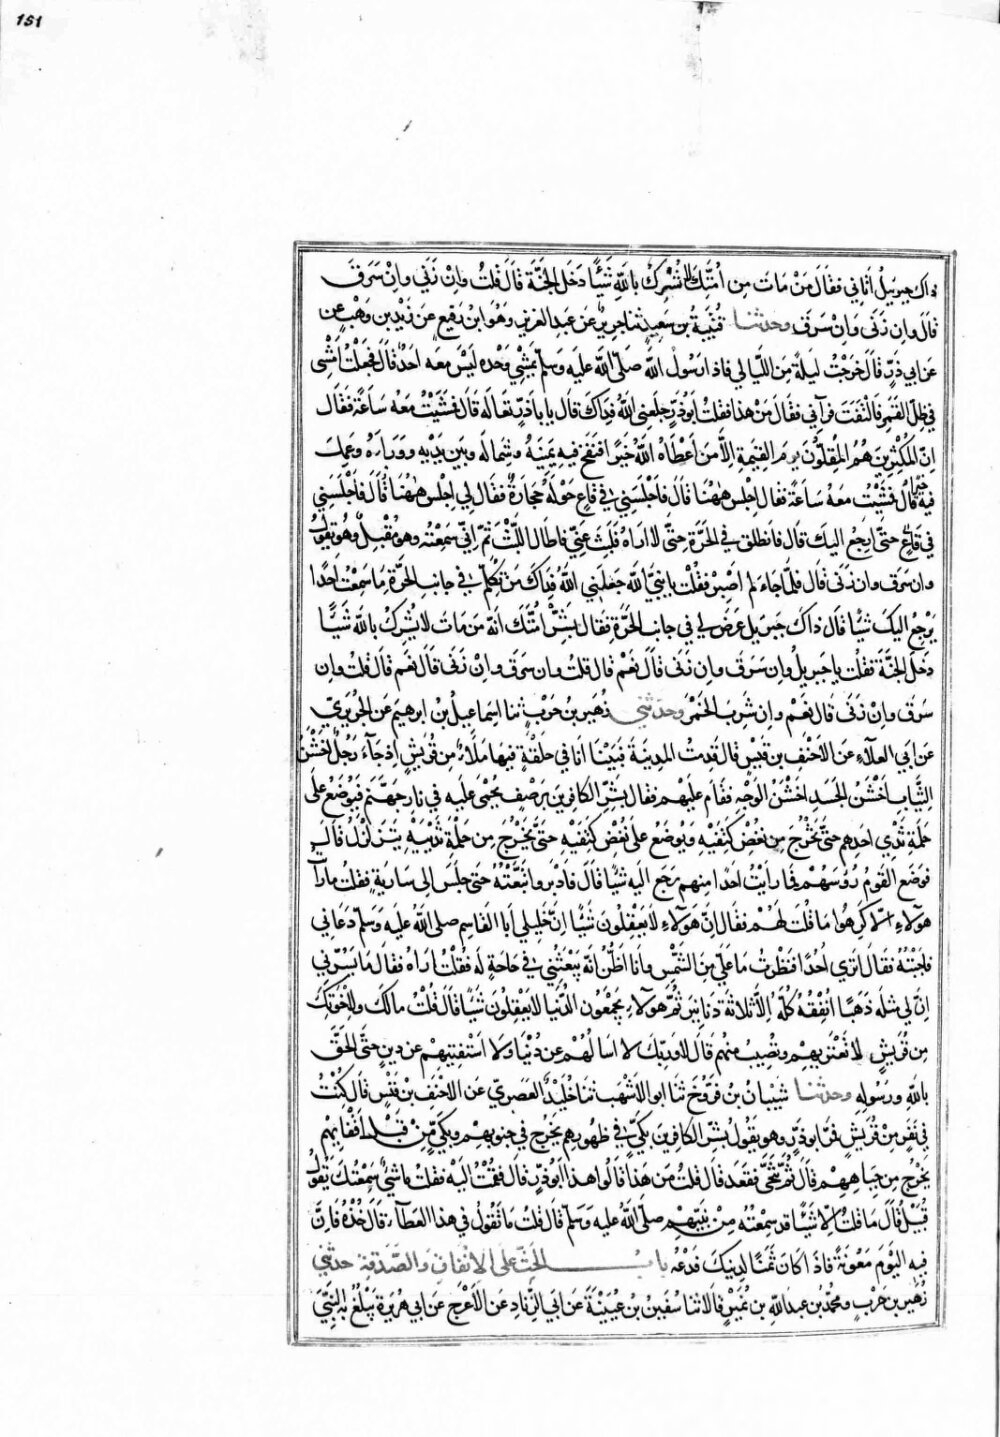 151
ذاك جبريل أتاني فقال من مات من أمتك لا يشرك بالله شيئا دخل الجنة قال قلت وان زنى وان سرق
قال وان زنى وان سرق وحدثنا قتيبة بن سعيد ثنا جرير عن عبد العزيز وهو ابن رفيع عن زيد بن وهب عن
عن ابي ذر قال خرجت ليلة من الليالي فاذا رسول الله صلى الله عليه وسلم يمشي وحده ليس معه احد قال فجعلت أمشي
في ظل القمر فالتفت فرآني فقال من هذا فقلت ابو ذر جعلني الله فداك قال يا با ذر تعاله قال فمشيت معه ساعة فقال
ان المكثرين هم المقلون يوم القيمة الا من اعطاه الله خيرا فنفخ فيه يمينه وشماله وبين يديه ووراءه وعمل
فيه خيرا قال فمشيت معه ساعة فقال اجلس ههنا قال فاجلسني في قاع حوله حجارة فقال لي اجلس ههنا قال فاجلسني
في قاع حتى ارجع اليك قال فانطلق في الحرة حتى لا اراه فلبث عني فاطال اللبث ثم اني سمعته وهو مقبل وهو يقول
وان سرق وان زنى قال فلما جاء لم اصبر فقلت يا نبي الله جعلني الله فداك من تكلم في جانب الحرة ما سمعت احدا
يرجع اليك شيئا قال ذاك جبريل عرض لي في جانب الحرة فقال بشر امتك انه من مات لا يشرك بالله شيئا
دخل الجنة فقلت يا جبريل وان سرق وان زنى قال نعم قال قلت وان سرق وان زنى قال نعم قال قلت وان
سرق وان زنى قال نعم وان شرب الخمر وحدثني زهير بن حرب ثنا اسماعيل بن ابرهيم عن الجريري
عن ابي العلاء عن الاحنف بن قيس قال قدمت المدينة فبينا انا في حلقة فيها ملأ من قريش اذ جاء رجل اخشن
الثياب اخشن الجسد اخشن الوجه فقام عليهم فقال بشر الكافرين برصف يحمى عليه في نار جهنم فيوضع على
حلمة ثدي احدهم حتى يخرج من نغض كتفيه ويوضع على نغض كتفيه حتى يخرج من حلمة ثدييه يتزلزل قال
فوضع القوم رؤسهم فما رأيت احدا منهم رجع اليه شيئا قال فادبر واتبعته حتى جلس الى سارية فقلت ما رأيت
هولاء الا كرهوا ما قلت لهم فقال ان هولاء لا يعقلون شيئا ان خليلي ابا القاسم صلى الله عليه وسلم دعاني
فاجبته فقال اترى احدا فنظرت ما علي من الشمس وانا اظن انه يبعثني في حاجة له فقلت اراه فقال ما يسرني
ان لي مثله ذهبا انفقه كله الا ثلاثة دنانير ثم هولاء يجمعون الدنيا لا يعقلون شيئا قال قلت مالك ولاخوتك
من قريش لا تعتريهم وتصيب منهم قال لا وربك لا اسالهم عن دنيا ولا استفتيهم عن دين حتى الحق
بالله ورسوله وحدثنا شيبان بن فروخ ثنا ابو الاشهب ثنا خليد العصري عن الاحنف بن قيس قال كنت
في نفر من قريش فمر ابو ذر وهو يقول بشر الكافرين بكي في ظهورهم يخرج في جنوبهم وبكي من قبل اقفايهم
يخرج من جباههم قال ثم تنحى فقعد قال قلت من هذا قالوا هذا ابو ذر قال فقمت اليه فقلت ما شئ سمعتك تقول
قبيل قال ما قلت الا شيئا قد سمعته من نبيهم صلى الله عليه وسلم قال قلت ما تقول في هذا العطاء قال خذه فان
فيه اليوم معونة فاذا كان ثمنا لدينك فدعه باب الحث على الانفاق والصدقة حدثني
زهير بن حرب ومحمد بن عبد الله بن نمير قالا ثنا سفين بن عيينة عن ابي الزناد عن الاعرج عن ابي هريرة يبلغ به النبي